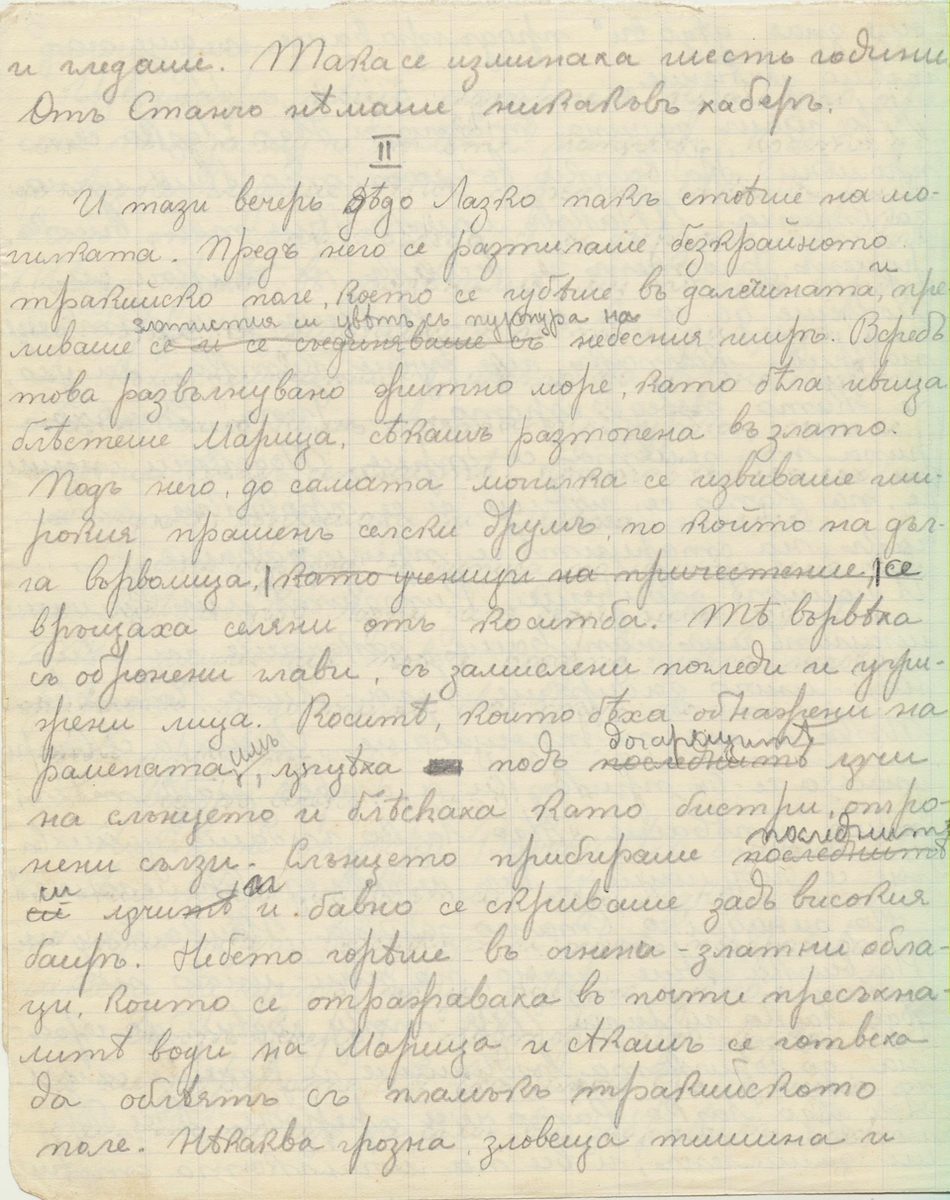 и гледаше. Така се изминаха шесть години
Отъ Станчо нѣмаше никакъвъ хаберъ.
II
И тази вечерь дѣдо Лазко пакъ стоѣше на мо-
гилката. Предъ него се разтилаше безкрайното
тракийско поле, което се губѣше въ далечината, и пре-
златистия си цвѣтъ съ пурпура на
ливаше се и се съединяваше съ небесния ширъ. Всредъ
това развълнувано житно море, като бѣла ивица
блѣстеше Марица, сѣкашъ разтопена въ злато.
Подъ него, до самата могилка се извиваше ши-
рокия прашенъ селски друмъ, по който на дъл-
га върволица, като ученици на причестение, се
връщаха селяни отъ коситба. Тѣ вървѣха
съ оброшени глави, съ замислени погледи и угри-
жени лица. Коситѣ, които бѣха обнажени на
догарящитѣ
рамената имъ, лъщѣха подъ последнитѣ лъчи
на слънцето и блѣскаха като бистри, отро-
последнитѣ
нени сълзи. Слънцето прибираше последнитѣ
си
си лъчитѣ и бавно се скриваше задъ високия
баиръ. Небето горѣше въ огнени-златни обла-
ци, които се отразяваха въ почти пресъхна-
литѣ води на Марица и сѣкашъ се готвеха
да облѣятъ съ пламъкъ тракийското
поле. Нѣкаква грозна, зловеща тишина и